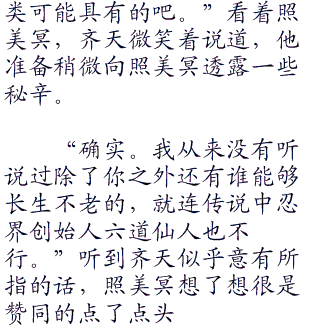 类可能具有的吧。”看着照
美冥，齐天微笑着说道，他
准备稍微向照美冥透露一些
秘辛。
“确实。我从来没有听
说过除了你之外还有谁能够
长生不老的，就连传说中忍
界创始人六道仙人也不
行。”听到齐天似乎意有所
指的话，照美冥想了想很是
赞同的点了点头